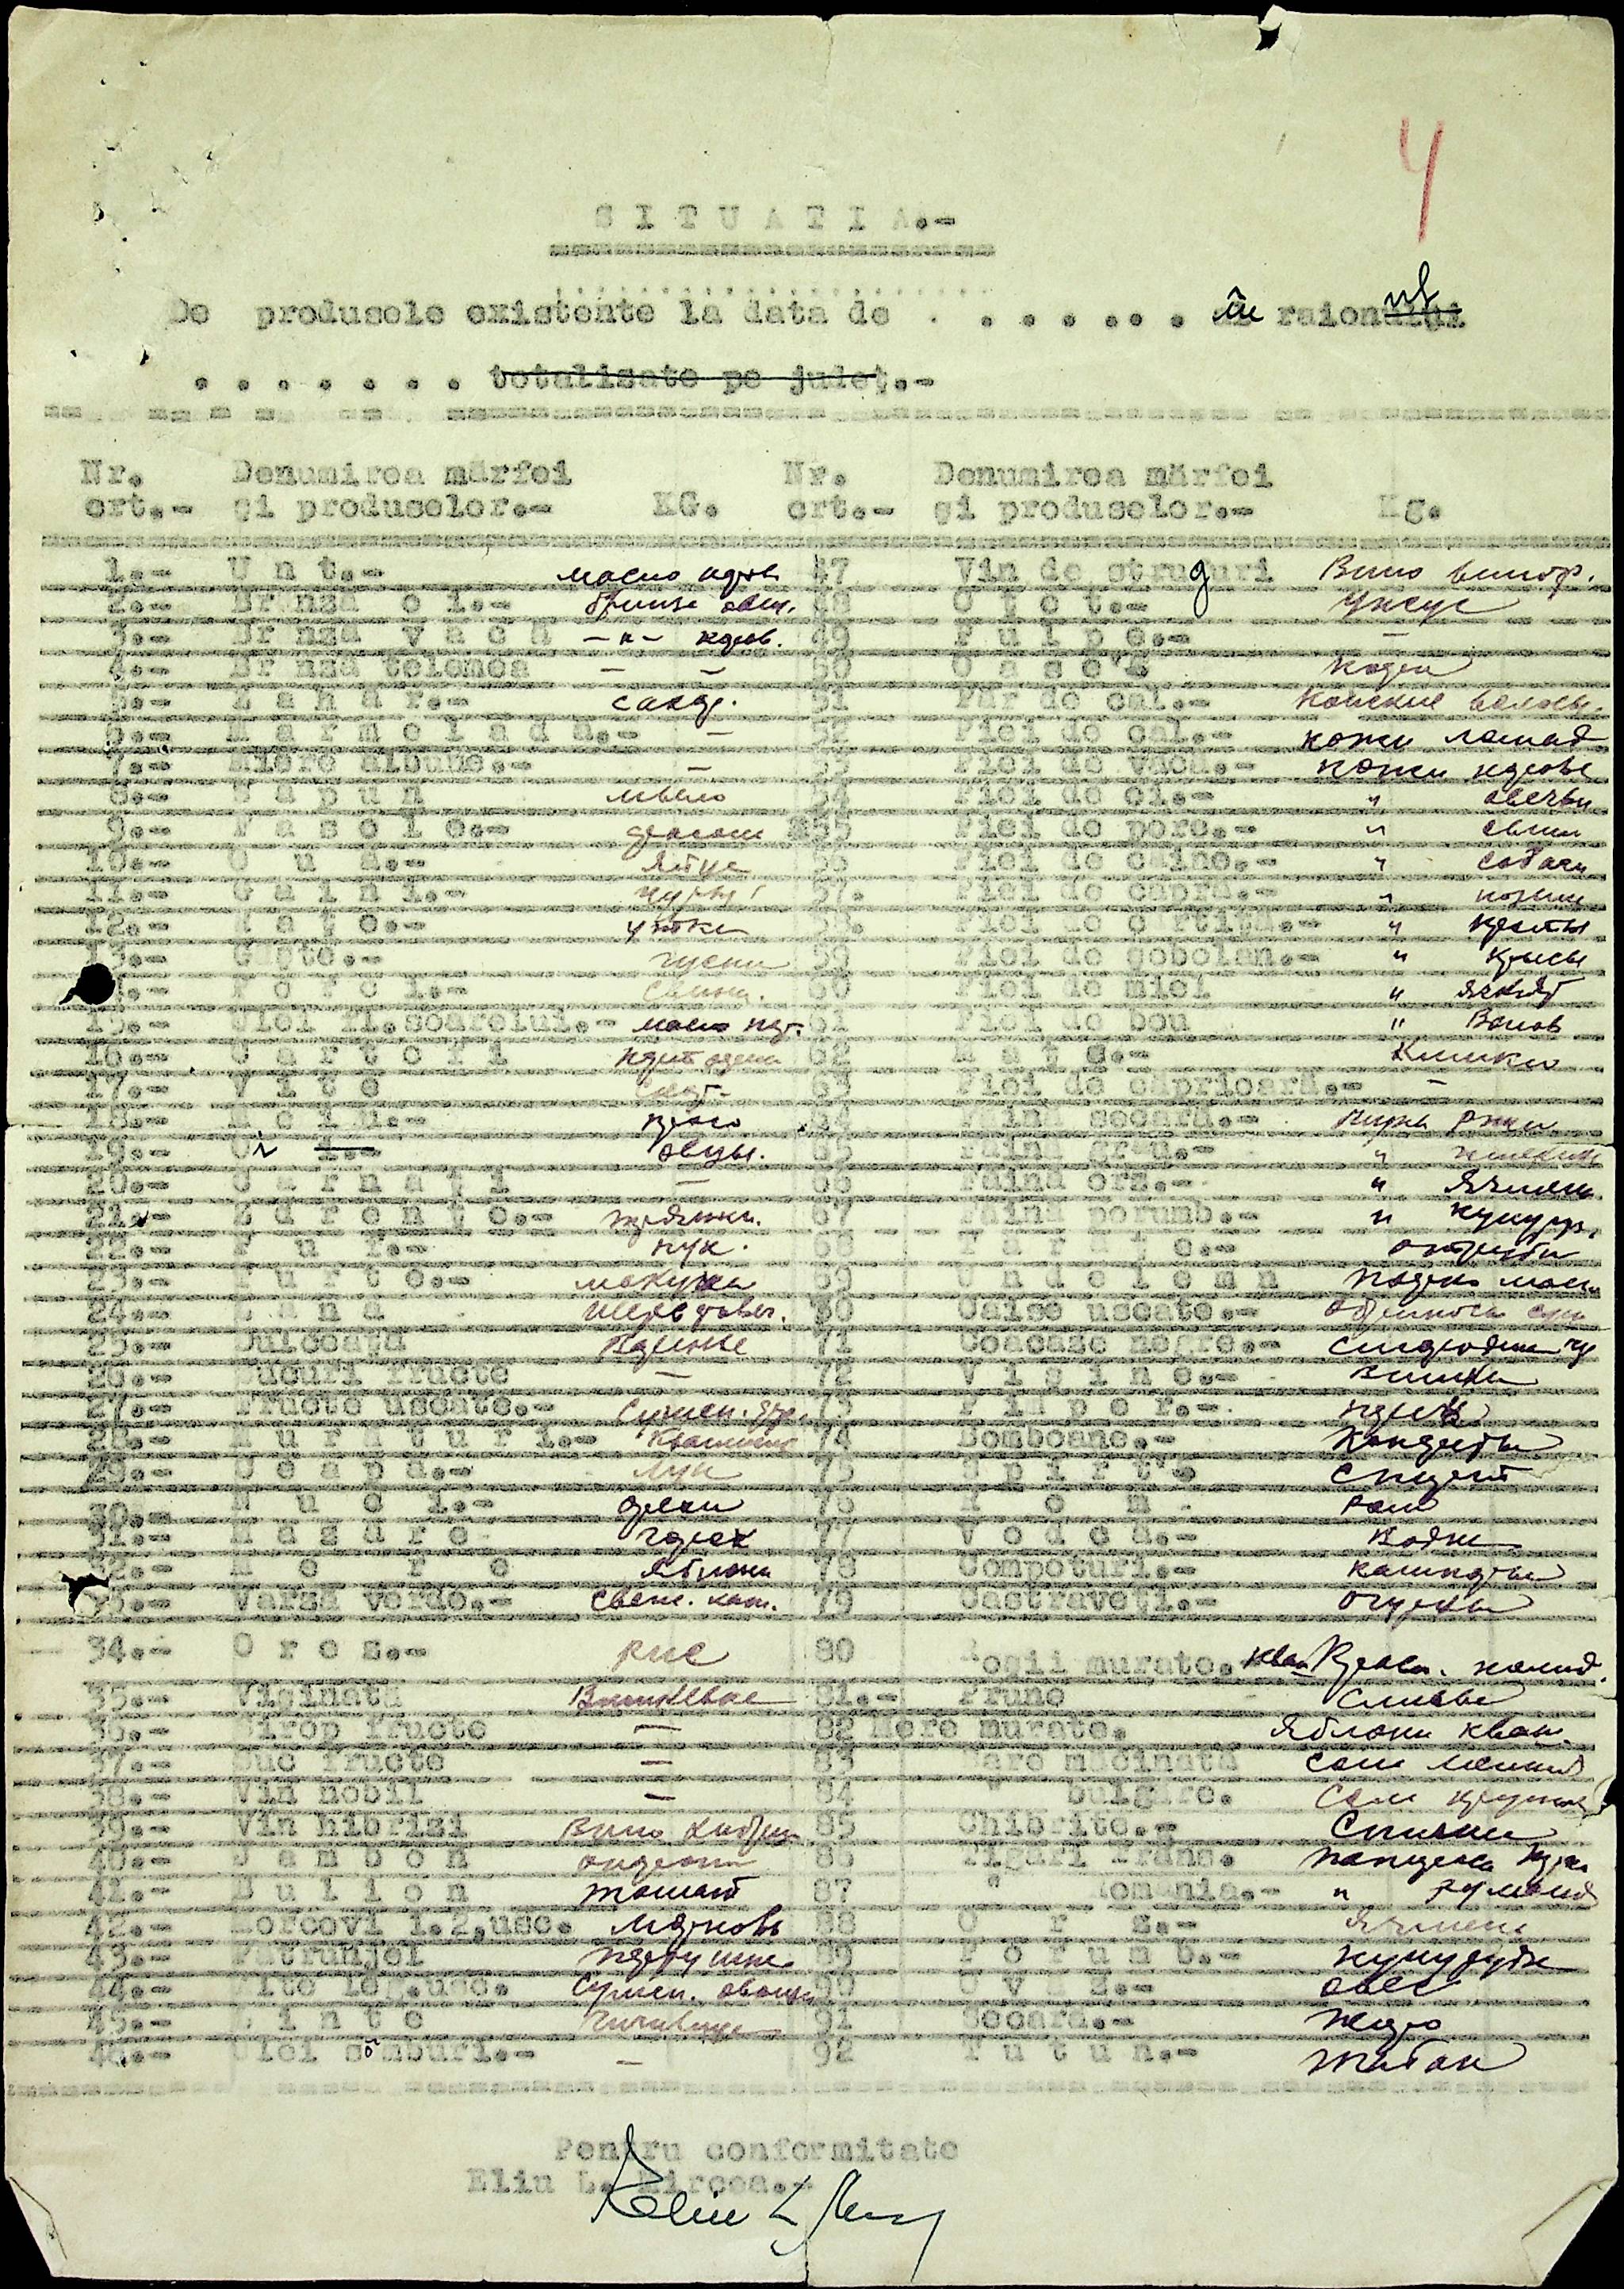 4
SITUATIA.-
De produsele existente la data de . . . . . . . . în raionul
. . . . . . . totalizate pe județ.-
Nr. Denumirea mărfei Nr. Denumirea mărfei
crt.- și produselor.- KG. crt.- și produselor.- Kg.
1.- Unt.- масло 47 Vin de struguri Вино виногр.
2.- Brînză oi.- 48 Oțet.- Уксус
3.- Brînză vacă -"- коров. 49 Pulpe.- -
4.- Brînză telemea - - 50 Oase
5.- Zahăr.- сахар. 51 Păr de cal.- Конские волосы.
6.- Marmeladă.- - 52 Piei de cal.- кожи лошад
7.- Miere albine.- - 53 Piei de vacă.- кожи коровы
8.- Săpun мыло 54 Piei de oi.- " овечьи
9.- Fasole.- фасоли 55 Piei de porc.- " свин
10.- Ouă.- Яйца 56 Piei de cîine.- " собачи
11.- Găini.- куры 57.- Piei de capră.- " козьи
12.- Rațe.- утки 58.- Piei de cîrtiță.- " кроты
13.- Gîște.- гуси 59 Piei de șobolan.- " крысы
14.- Porci.- Свиньи. 60 Piei de miel " ягнят
15.- Ulei fl.soarelui.- масло 61 Piei de bou " Волов
16.- Cartofi картофель 62 Mațe.- Кишки
17.- Vite Скот- 63 Piei de căprioară.- -
18.- 64 Făină secară.- Мука ржи
19.- Oi.- Овцы. 65 Făină grîu.- "
20.- Cârnați - 66 Făină orz.- " Ячмень
21.- Zdrențe.- тряпки. 67 Făină porumb.- " кукуруз.
22.- Puf.- пух. 68 Tărâțe.- отруби
23.- Turte.- макуха 69 Undelemn
24.- Lână шерсть овеч. 70 Caise uscate.- Абрикосы суш
25.- Dulceață Варенье 71 Coacăze negre.- Смородина ч
26.- Sucuri fructe - 72 Vișine.- Вишни
27.- Fructe uscate.- Сушен. фр. 73 Piper.- перец
28.- Murături.- Квашения 74 Bomboane.- Конфеты
29.- Ceapă.- Лук 75 Spirt.- Спирт
30.- Nuci.- орехи 76 Rom. Ром
31.- Mazăre горох 77 Vodcă.- Водка
32.- Mere Яблоки 78 Compoturi.- компоты
33.- Varză verde.- Свеж. кап. 79 Castraveți.- Огурцы
34.- Orez.- Рис 80 Roșii murate. Квас Красн. помид.
35.- Vișinată Вишневка 81.- Prune Сливы
36.- Sirop fructe - 82 Mere murate. Яблоки кваш.
37.- Suc fructe - 83 Sare măcinată Соли мелкий
38.- Vin nobil - 84 " bulgăre. Соли крупной
39.- Vin hibrizi Вино гибрид 85 Chibrite.- Спички
40.- Jambon окорок 86 Țigări Trans. папиросы
41.- Bulion томат 87 " România.- " Румыния
42.- Morcovi 1.2,usc. морковь 88 Orz.- Ячмень
43.- Pătrunjel петрушка 89 Porumb.- кукуруза
44.- Alte leg.usc. Сушен. овощи 90 Ovăz.- овес
45.- Linte Чечевица 91 Secară.- жито
46.- Ulei sâmburi.- - 92 Tutun.- табак
Pentru conformitate
Eliu L. Mircea.-